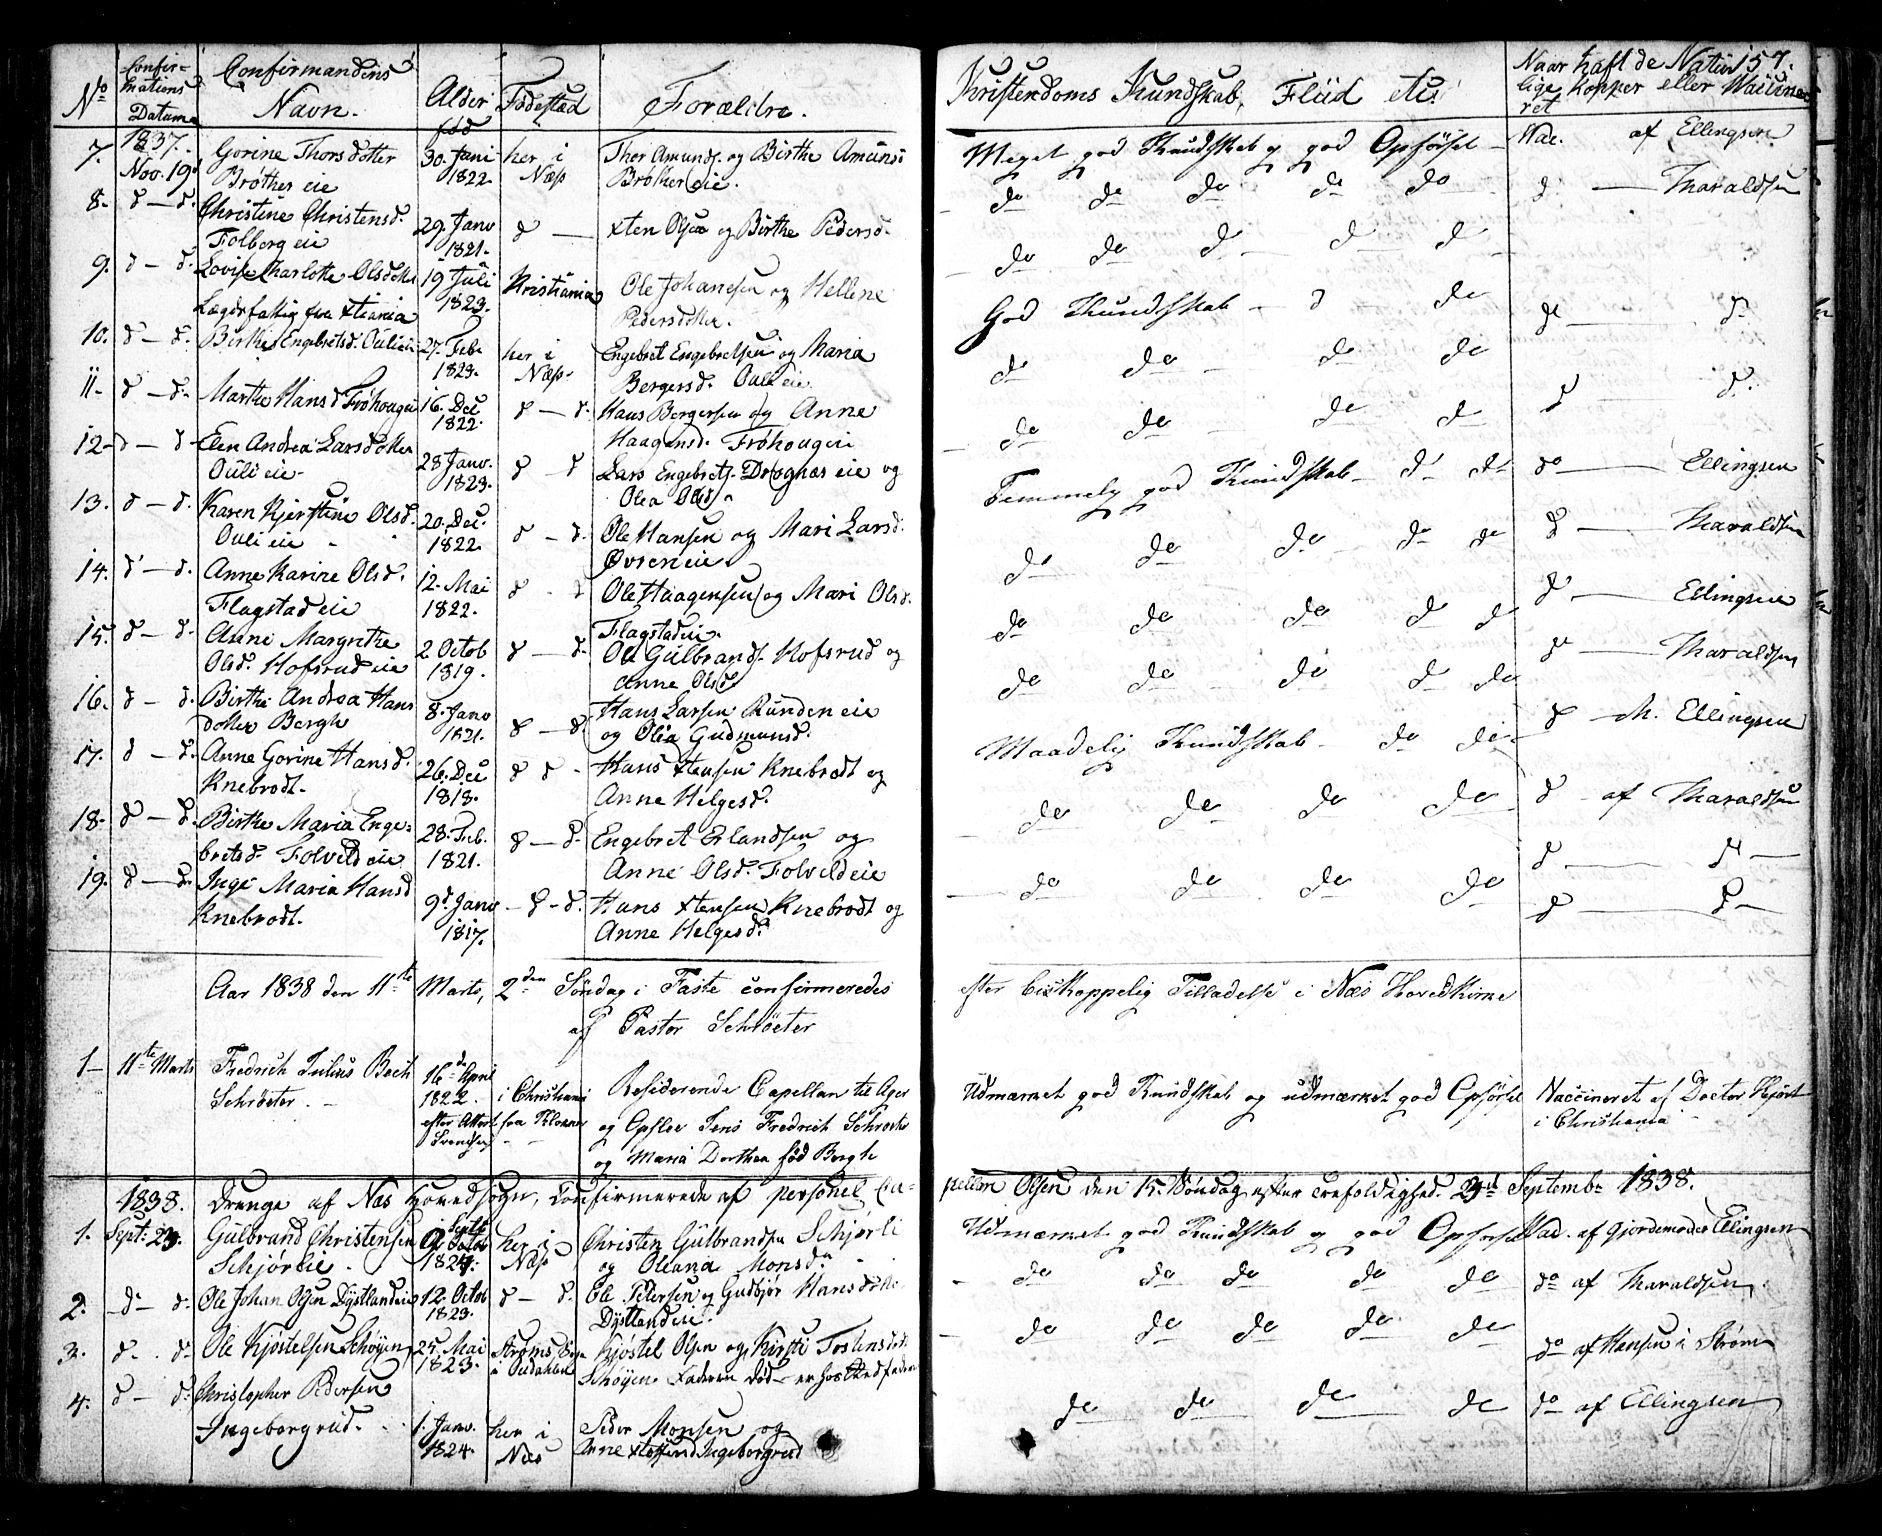 No
Confir-
mations
Datum
Confirmandens
Navn.
Alder
Fødested
Forældre.
Kristendoms Kundskab, Fliid etc.
Naar haft de Natur 157.
lige kopper eller Vaccine
ret
7. 1837. Nov. 19
Gorine Thorsdotter
Brøther eie
30. Juni
1822.
her i
Næs
Thor Amunds. og Birthe Amunds
Brøther eie.
Meget god Kundskab og god Opførsel
Vac. af Ellingsen
8. d — d.
Christine Christensd.
Folberg eie
29. Janv
1821.
d —
xten Olsen og Birthe Pedersd.
do do do do do
d. — Tharaldsen
9. d — d.
Lovise Charlotte Olsdotter
Lægdsfattig fra xtiania
19 Juli
1823.
Kristiania
Ole Johansen og Hellene
Pedersdotter.
do do d d d
10. d — d.
Birthe Engebretsd. Oulieie
27. Febr
1823.
her i
Næs.
Engebret Engebretsen og Maria
Bergersd. Oulieie
God Kundskab — d do
do — d.
11. d — d.
Marthe Hansd Frøhougeie
16. Dec
1822.
d — d.
Hans Bergersen og Anne
Haagensd. Frøhougeie
do do do do
d d.
12 d — d.
Elen Andrea Larsdotter
Oulieie
28 Janv.
1823.
d — d
Lars Engebrets. Drognæs eie og
Olea Olsd.
do do do d
do — Ellingsen
13. d — d.
Karen Kjerstine Olsd.
Ouli eie
20. Dec.
1822.
d — d.
Ole Hansen og Mari Larsd.
Øvreneie
Temmelig god Kundskab d d
d — Tharaldsen
14. d — d.
Anne Karine Olsd.
Flagstad eie
12. Mai
1822.
d - d
Ole Haagensen og Mari Olsd.
Flagstadeie.
do do do do do
d — Ellingsen
15. d — d.
Anne Margrethe
Olsd. Hofsrud eie
2 Octob
1819.
d — d.
Ole Gulbrands. Hofsrud og
Anne Olsd
do do do d d
do — Tharaldsen
16. d — d.
Birthe Andrea Hans
dotter Bergh
8. Janv
1821.
d — d.
Hans Larsen Runden eie
og Olia Gudmunsd.
do do do d do
d — M. Ellingsen
17. d — d.
Anne Gorine Hansd.
Knebrodt.
26. Dec
1818.
d d -
Hans xtensen Knebrodt og
Anne Helgesd.
Maadelig Kundskab — do do
d af Tharaldsen
18. d — d.
Birthe Maria Enge-
bretsd. Folveld eie
28. Feb.
1821.
d — d.
Engebret Erlandsen og
Anne Olsd. Folveld eie
do do do do
d — d —
19. d — d.
Inge Maria Hansd
Knebrodt.
9d. Janv
1817.
— d — d.
Hans xtensen Knebrodt og
Anne Helgesd.
do do do do
d — d —
Aar 1838 den 11te Marts, 2den Søndag i Faste confirmeredes efter biskoppelig Tilladelse i Næs Hovedkirke
af Pastor Schrøeter
1 — 11te Marts
Fredrich Julius Bech
Schrøeter. —
16de April
1822.
efter Attest fra
i Christiania
Residerende Capellan til Ager
og Opsloe Jens Fredrich Schrøeter
og Maria Dorthea fød Bergh
Udmærket god Kundskab og udmærket god Opførsel
Vaccineret af Doctor Hjort
i Christiania
1838. Drenge af Næs Hovedsogn, Confirmerede af personel Ca-
pellan Olsen den 15. Søndag efter Trefoldighed. 23d Septembr 1838.
1. Sept. 23.
Gulbrand Christensen
Schjørlie.
Septb
1824.
her i
Næs
Christen Gulbrandsen Schjørli
og Oleana Monsdr
Udmærket god Kundskab og god Opførsel
Vac. af Gjordemoder Ellingsen
2. d — d.
Ole Johan Olsen Dystlandeie
12. Octob
1823.
d — d.
Ole Petersen og Gudbjør Hansdotter
Dystlandeie.
do do do do do
do af Tharaldsen
3. d . d
Ole Kjøstelsen Schøyen
25. Mai
1823.
Strøms
i Oudahlen
Kjøstel Olsen og Kirsti Tostensdtr
Schøyen. Faderen død — er hos
do do do do do
do af Hansen i Strøm
4. d — d.
Christopher Pedersen
Ingeborgrud.
1. Janv.
1824.
her i
Næs
Peder Monsen og
Anne xtoffersd Ingeborgrud
do do do do
do af Ellingsen